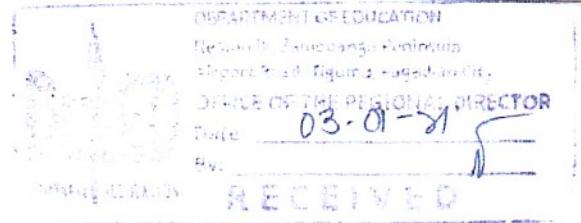 DEPARTMENT OF EDUCATION
Zamboanga Peninsula
Airport Road, Tiguma, Pagadian City
OFFICE OF THE REGIONAL DIRECTOR
Date: 03-01-21
By:
RECEIVED